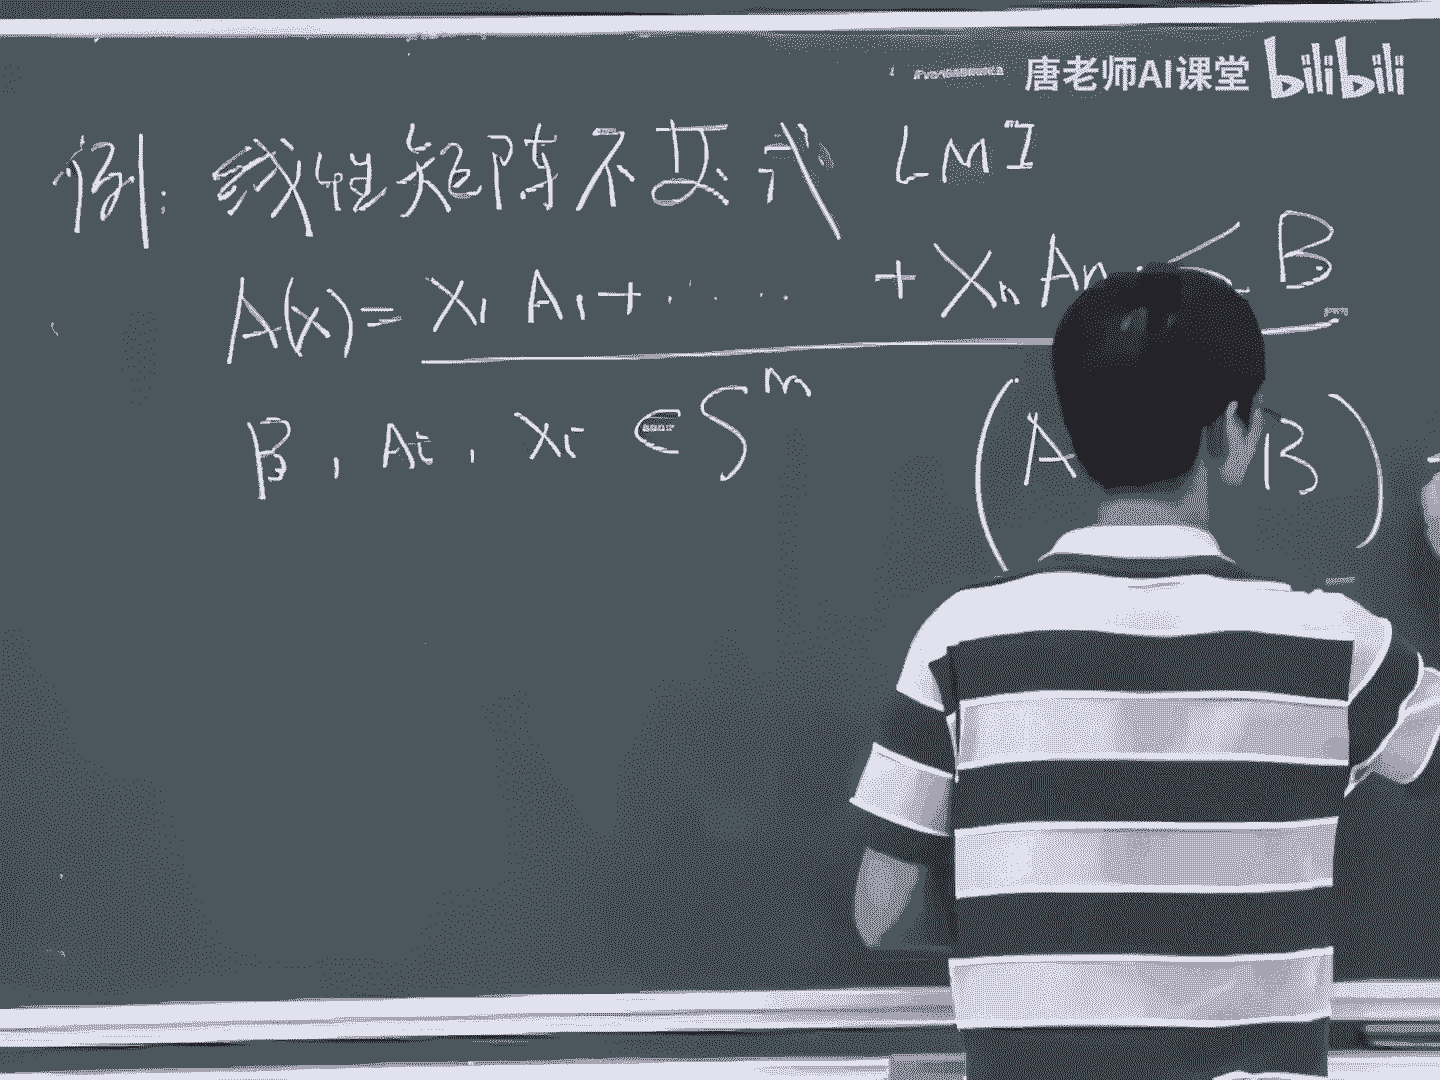 唐老师AI课堂 bilibili
例: 线性矩阵不等式 LMI
A(x)= x₁ A₁ + · · · · · + xₙ Aₙ ≤ B
B , Ai , xi ∈ Sᵐ
( A B )